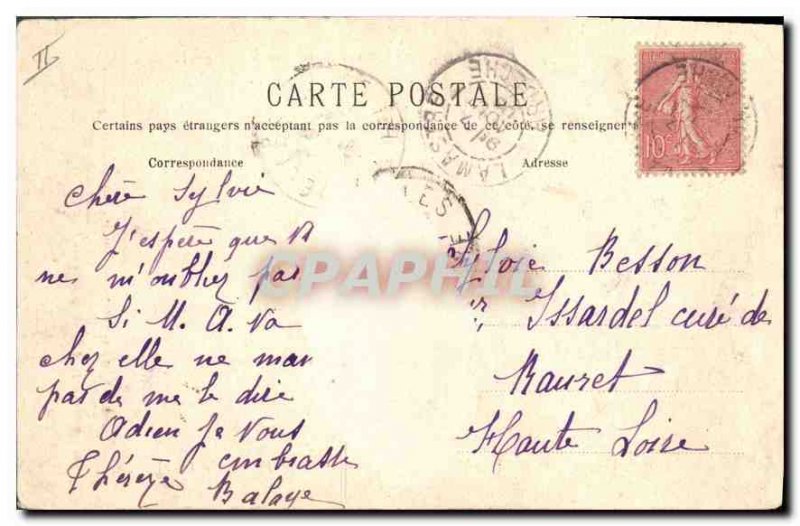 II
CARTE POSTALE
Certains pays étrangers n'acceptant pas la correspondance de ce côté, se renseigner
Correspondance
Adresse
LAMASTRE
ARDÈCHE
10
CPAPHIL
Chère Sylvie
J'espère que
ne m'oubliez pas
Si M. A. Va
chez elle ne man
pas de me le dire
Adieu Je Vous
embrasse
Thérèze
Balaye
Sylvie Besson
Issardel curé de
Rauret
Haute Loire